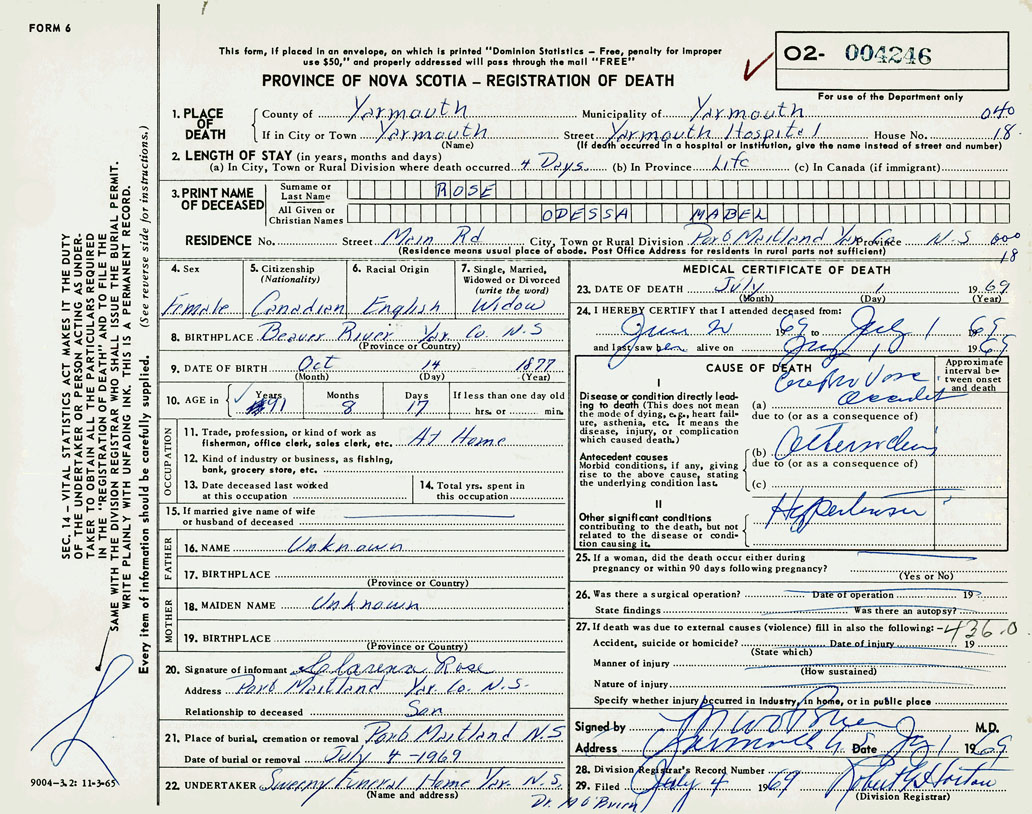 FORM 6
This form, if placed in an envelope, on which is printed "Dominion Statistics – Free, penalty for improper
use $50," and properly addressed will pass through the mail "FREE"
PROVINCE OF NOVA SCOTIA – REGISTRATION OF DEATH
02- 004246
For use of the Department only
1. PLACE OF DEATH
County of Yarmouth Municipality of Yarmouth 040
If in City or Town Yarmouth Street Yarmouth Hospital House No. 18
(Name) (If death occurred in a hospital or institution, give the name instead of street and number)
2. LENGTH OF STAY (in years, months and days)
(a) In City, Town or Rural Division where death occurred 4 Days (b) In Province Life (c) In Canada (if immigrant)
3. PRINT NAME OF DECEASED
Surname or Last Name ROSE
All Given or Christian Names ODESSA MABEL
RESIDENCE No. Street Main Rd City, Town or Rural Division Port Maitland Yar. Co Province N.S 000
(Residence means usual place of abode. Post Office Address for residents in rural parts not sufficient) 18
4. Sex
Female
5. Citizenship
(Nationality)
Canadian
6. Racial Origin
English
7. Single, Married,
Widowed or Divorced
(write the word)
Widow
8. BIRTHPLACE Beaver River Yar. Co. N.S
(Province or Country)
9. DATE OF BIRTH Oct 14 1877
(Month) (Day) (Year)
10. AGE in Years Months Days If less than one day old
91 8 17 hrs. or min.
OCCUPATION
11. Trade, profession, or kind of work as
fisherman, office clerk, sales clerk, etc. At Home
12. Kind of industry or business, as fishing,
bank, grocery store, etc.
13. Date deceased last worked
at this occupation
14. Total yrs. spent in
this occupation
15. If married give name of wife
or husband of deceased
FATHER
16. NAME Unknown
17. BIRTHPLACE
(Province or Country)
MOTHER
18. MAIDEN NAME Unknown
19. BIRTHPLACE
(Province or Country)
20. Signature of informant Rose
Address Port Maitland Yar. Co. N.S.
Relationship to deceased Son
21. Place of burial, cremation or removal Port Maitland N.S
Date of burial or removal July 4 - 1969
22. UNDERTAKER Sweeny Funeral Home Yar. N.S.
(Name and address)
MEDICAL CERTIFICATE OF DEATH
23. DATE OF DEATH July 1 1969
(Month) (Day) (Year)
24. I HEREBY CERTIFY that I attended deceased from:
1969 to July 1 1969
and last saw her alive on 1969
CAUSE OF DEATH
Approximate
interval be-
tween onset
and death
I
Disease or condition directly lead-
ing to death (This does not mean
the mode of dying, e.g., heart fail-
ure, asthenia, etc. It means the
disease, injury, or complication
which caused death.)
(a)
due to (or as a consequence of)
Antecedent causes
Morbid conditions, if any, giving
rise to the above cause, stating
the underlying condition last.
(b)
due to (or as a consequence of)
(c)
II
Other significant conditions
contributing to the death, but not
related to the disease or condi-
tion causing it.
Hypertension
25. If a woman, did the death occur either during
pregnancy or within 90 days following pregnancy?
(Yes or No)
26. Was there a surgical operation? Date of operation 19
State findings Was there an autopsy?
27. If death was due to external causes (violence) fill in also the following: -436.0
Accident, suicide or homicide? Date of injury 19
(State which)
Manner of injury
(How sustained)
Nature of injury
Specify whether injury occurred in industry, in home, or in public place
Signed by M.D.
Address Yarmouth N.S Date 1 1969
28. Division Registrar's Record Number
29. Filed July 4 1969 Robert Horton
(Division Registrar)
Dr. M O'Brien
SEC. 14 – VITAL STATISTICS ACT MAKES IT THE DUTY
OF THE UNDERTAKER OR PERSON ACTING AS UNDER-
TAKER TO OBTAIN ALL THE PARTICULARS REQUIRED
IN THE "REGISTRATION OF DEATH" AND TO FILE THE
SAME WITH THE DIVISION REGISTRAR WHO SHALL ISSUE THE BURIAL PERMIT.
WRITE PLAINLY WITH UNFADING INK. THIS IS A PERMANENT RECORD.
Every item of information should be carefully supplied. (See reverse side for instructions.)
9004-3.2: 11-3-65